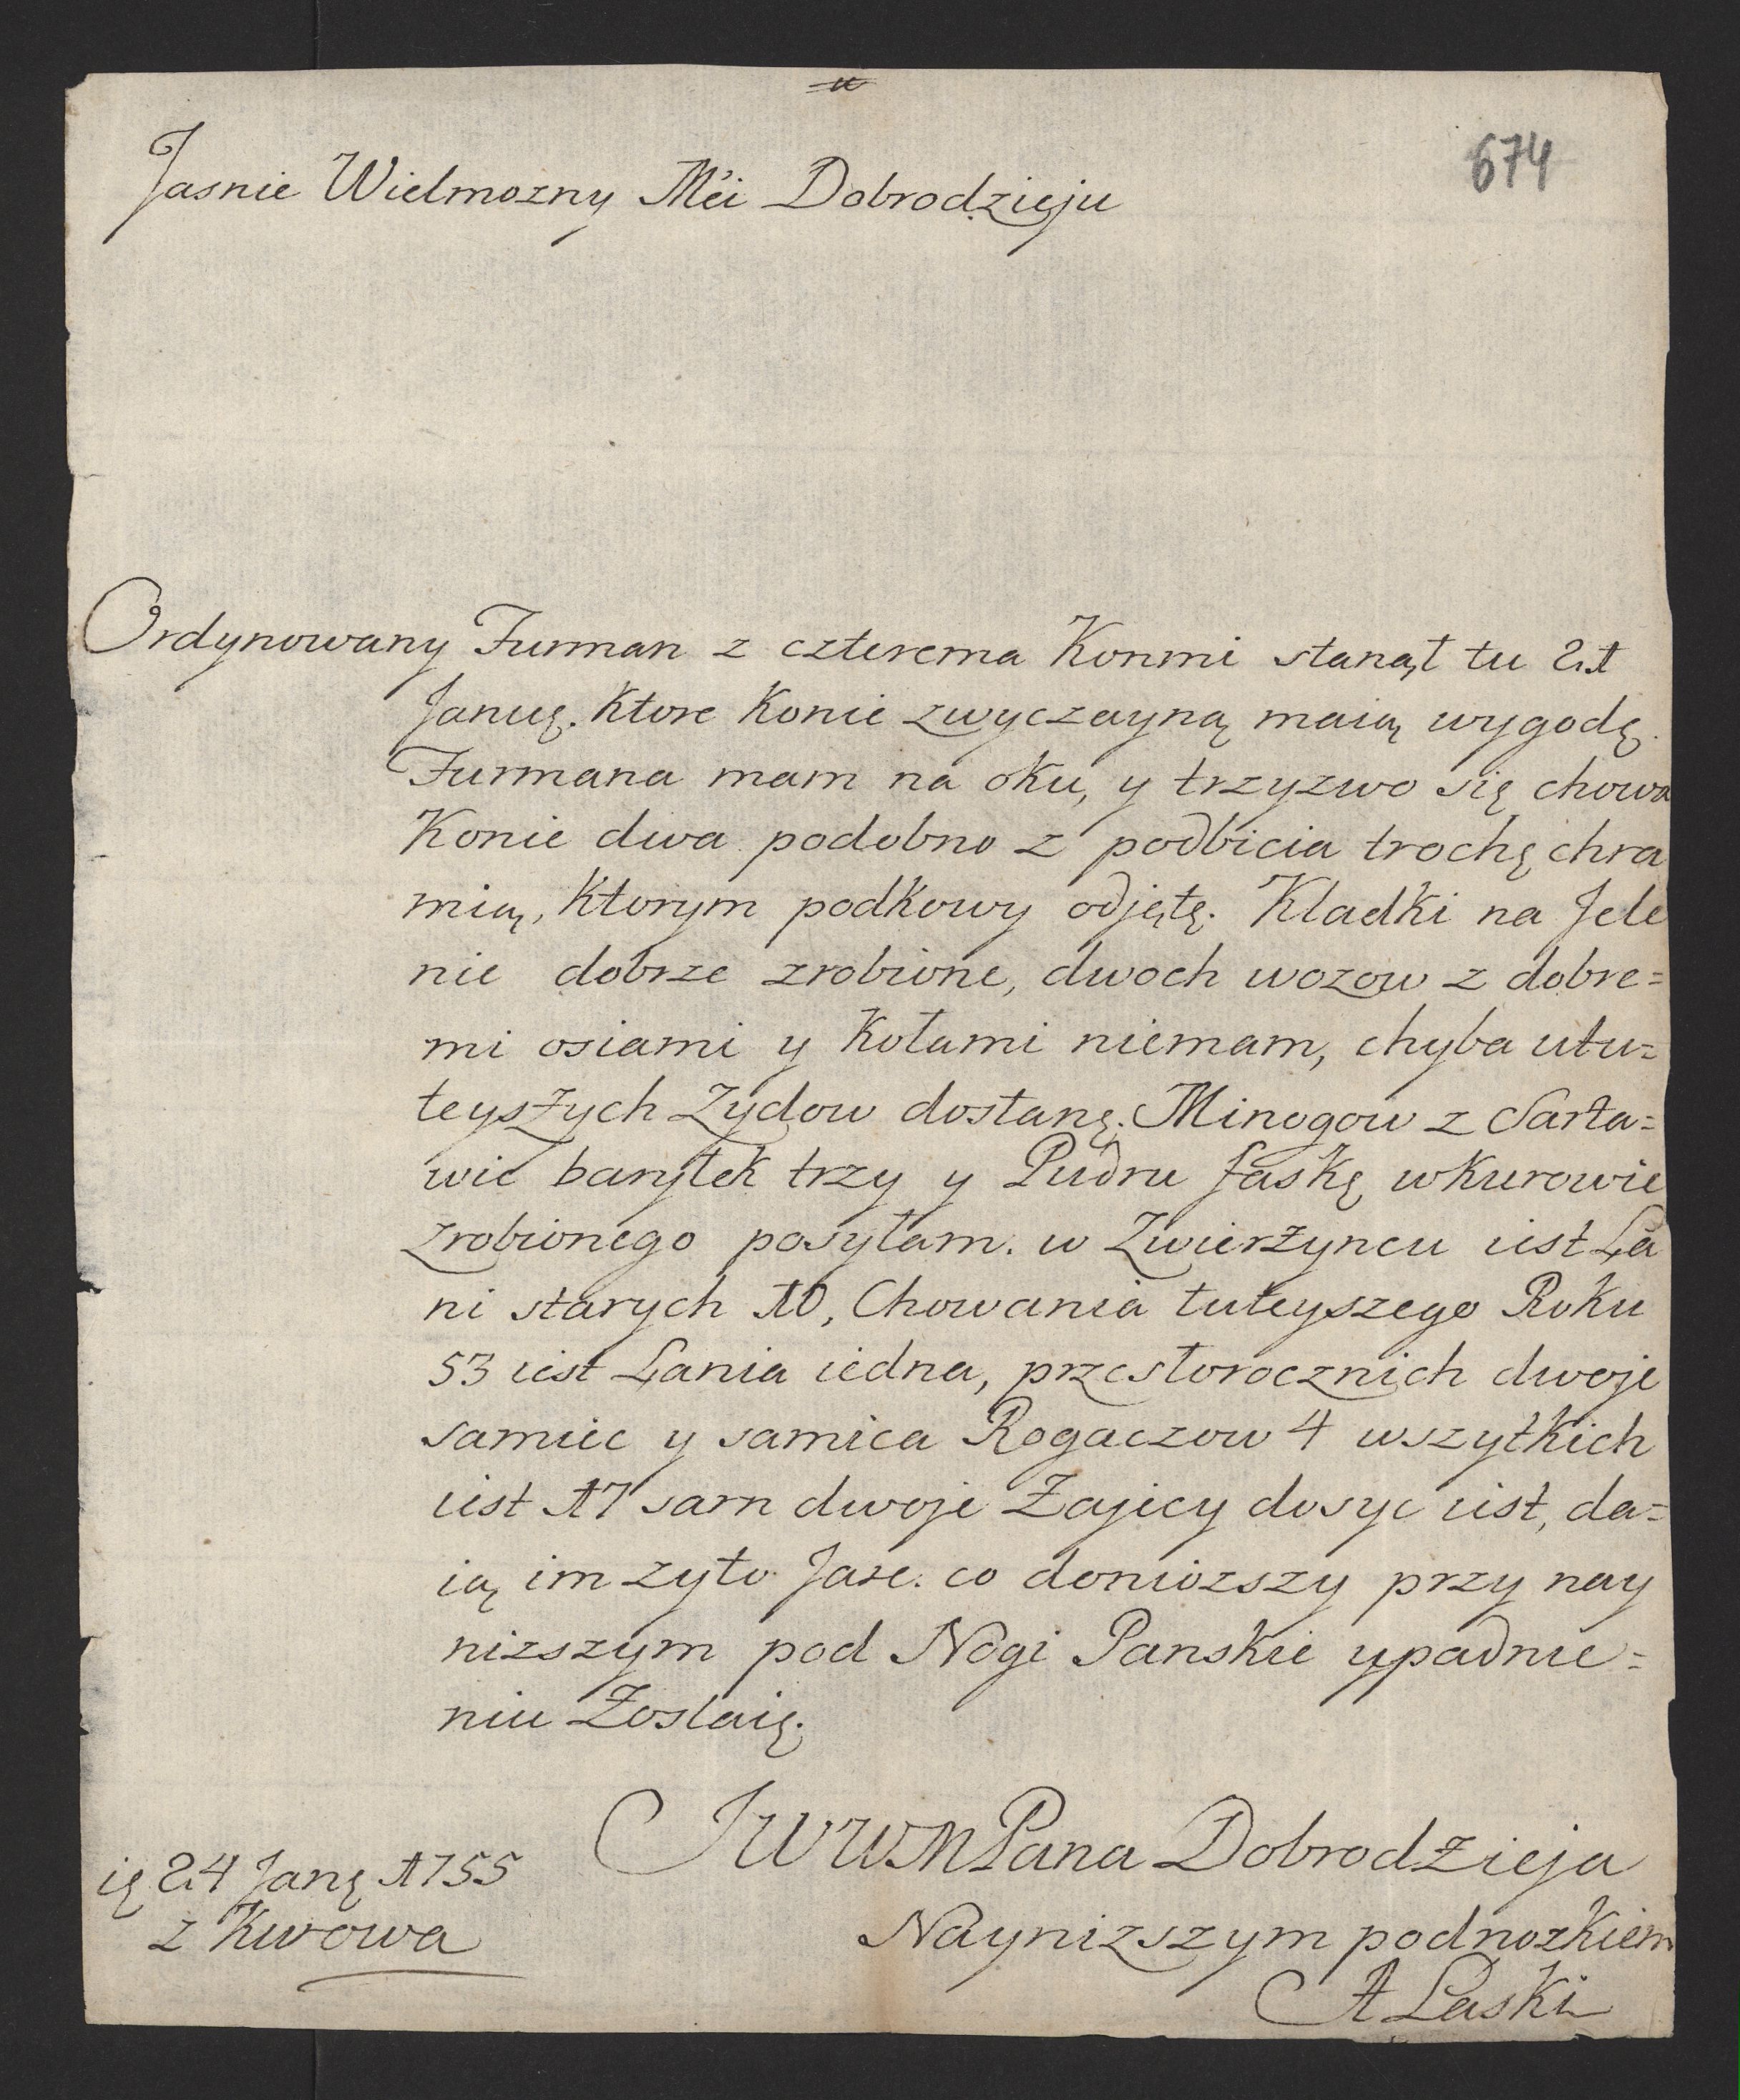 674
Jasnie Wielmozny Mći Dobrodzieju
Ordynowany Furman z czterema Konmi stanął tu 21
Januę. Ktore Konie zwyczayną maią wygodę.
Furmana mam na oku, y trzyzwo się chowa
Konie dwa podobno z podbicia trochę chra
mią, Ktorym podkowy odjętę. Kladki na Jele
nie dobrze zrobione, dwoch wozow z dobre=
mi osiami y Kołami niemam, chyba utu=
teyszych Zydow dostanę. Minogow z Sarta=
wic baryłek trzy y Pudru faskę wKurowie
zrobionego posyłam. w Zwierzyncu iest Ła
ni starych 10, Chowania tuteyszego Roku
53 iest Łania iedna, przestorocznich dwoje
samiec y samica Rogaczow 4 wszytkich
iest 17 sarn dwoje Zajicy dosyc iest, da=
ią im zyto Jare. co doniozszy przy nay
nizszym pod Nogi Panskie upadnie=
niu Zostaię.
JWWMPana Dobrodzieja
Naynizszym podnozkiem
A Laski
ię 24 Janę 1755
z Kwowa